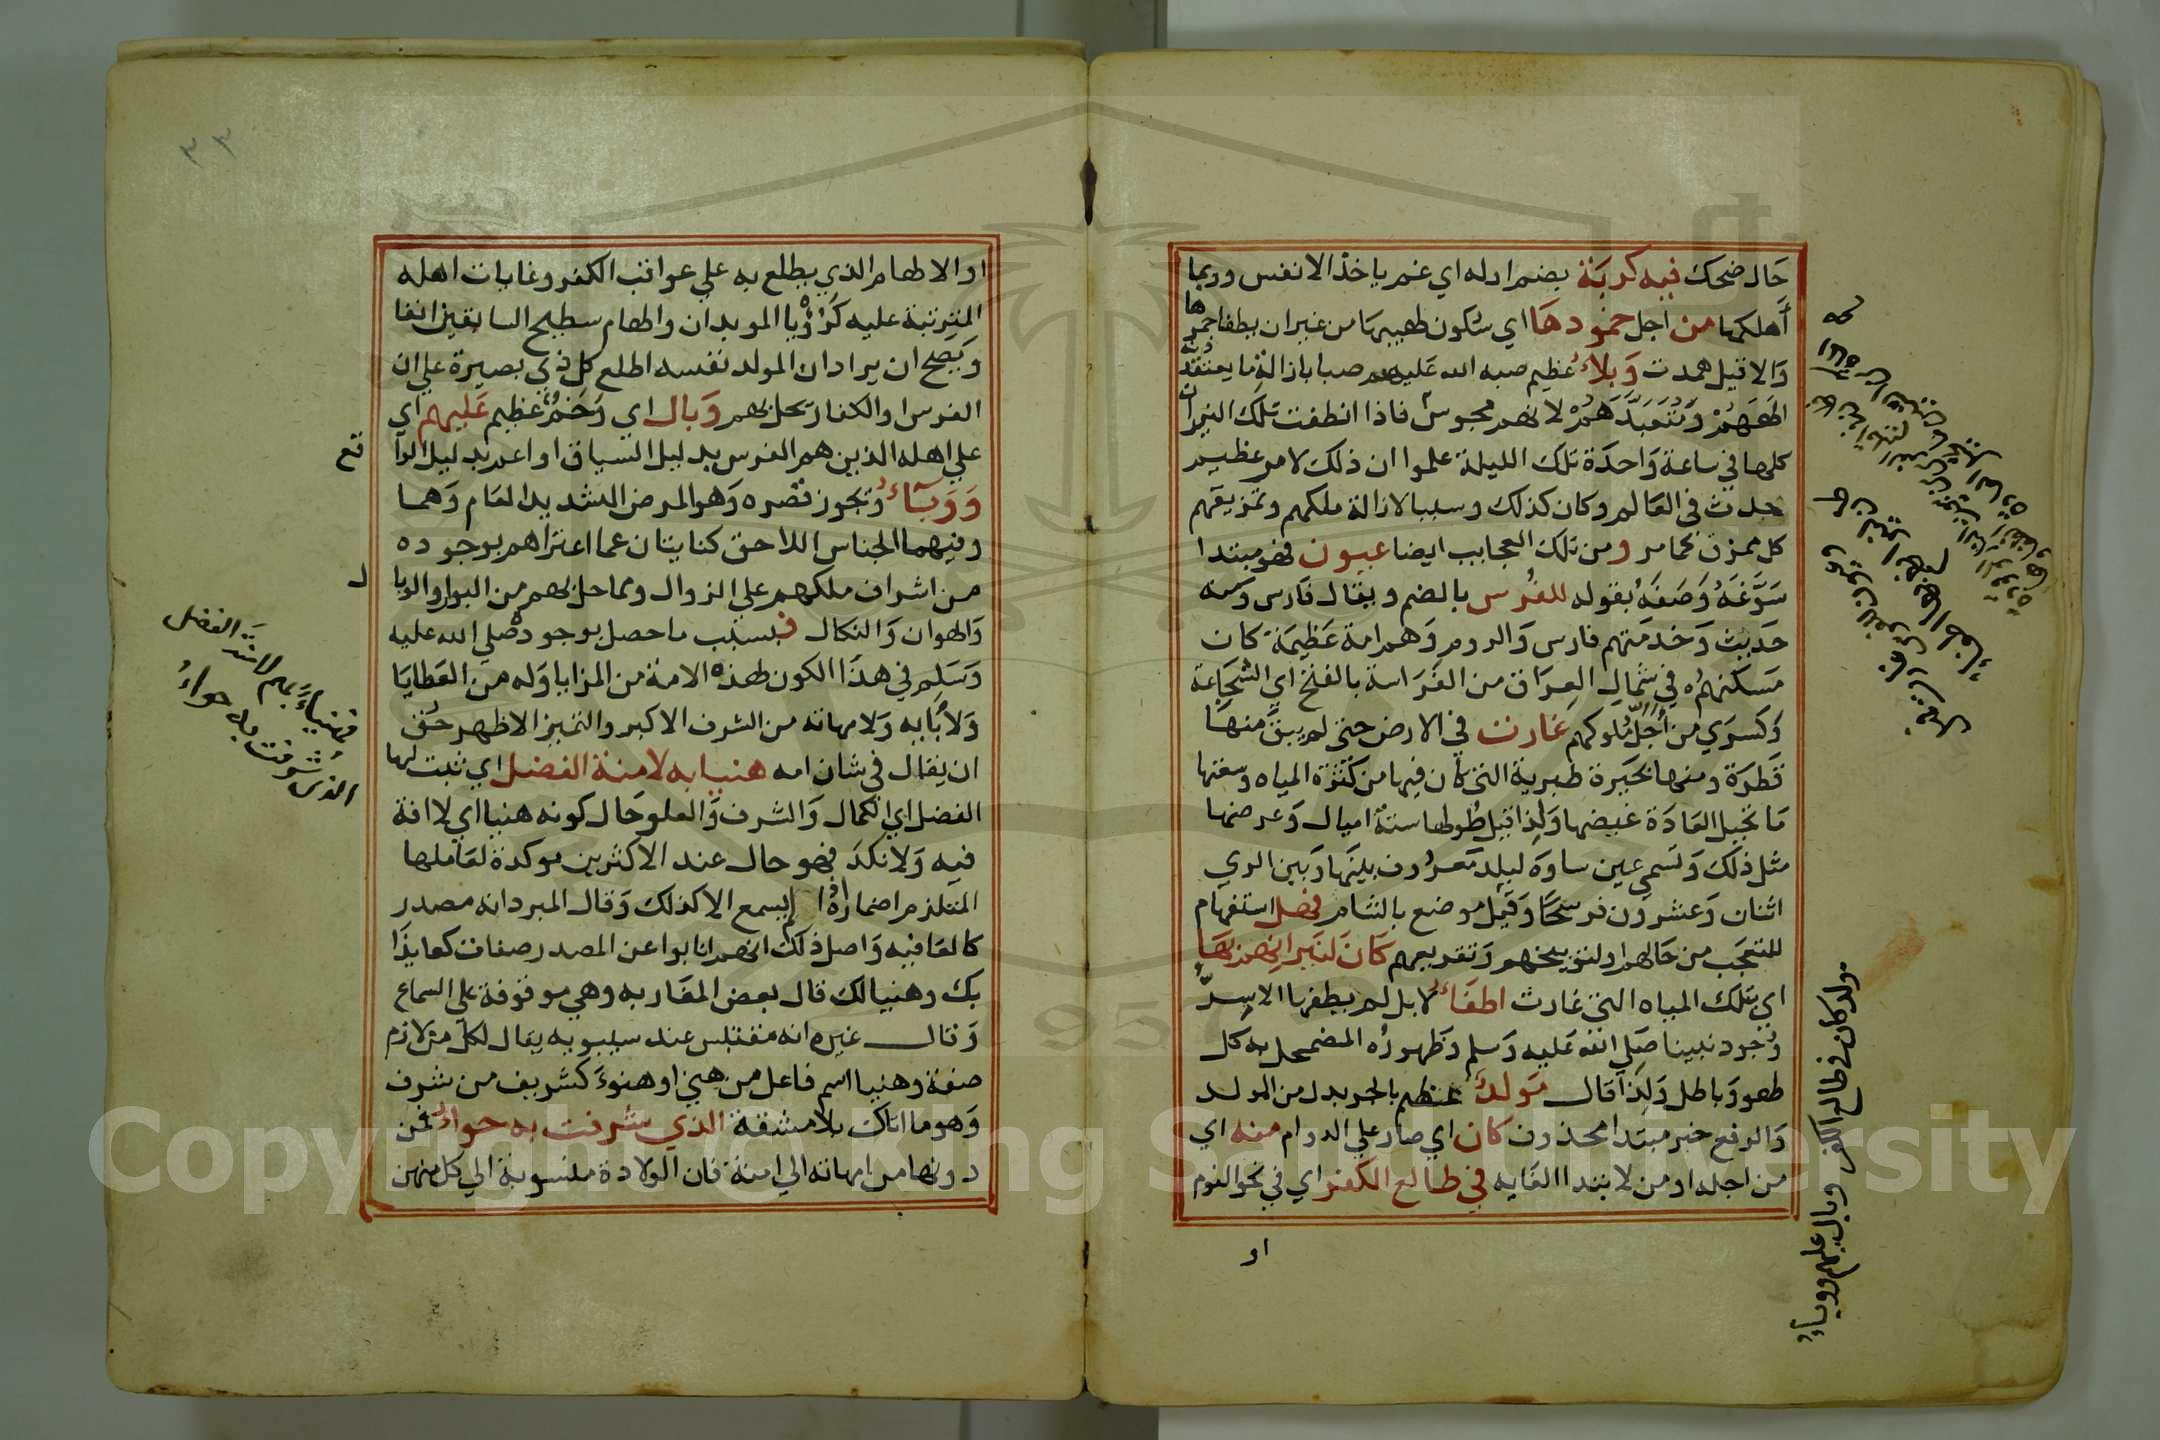 حال ضحك فيه كربة بضم اوله اي غم ياخذ الانفس وربما
أهلكها من اجل خمودها اي سكون لهيبها من غير ان يطفا جمرها
والا قيل همدت وبلاء عظيم صبه الله عليهم صبا بازالة ما يعتقد
الههم ومتعبدهم لانهم مجوس فاذا انطفت تلك النيران
كلها في ساعة واحدة تلك الليلة علموا ان ذلك لامر عظيم
حدث في العالم وكان كذلك وسببا لازالة ملكهم وتمزيقهم
كل ممزق كما مر ومن تلك العجايب ايضا عيون فهو مبتدا
سوغه وصفه بقوله للفرس بالضم ويقال فارس ومنه
حديث وخدمتهم فارس والروم وهم امة عظيمة كان
مسكنهم في شمال العراق من الفراسة بالفتح اي الشجاعة
وكسري من اجل ملوكهم غارت في الارض حتى لم يبق منها
قطرة ومنها بحيرة طبرية التي كان فيها من كثرة المياه وسعتها
ما تحيل العادة غيضها ولذا قيل طولها ستة اميال وعرضها
مثل ذلك وتسمي عين ساوة لبلد معروف بينها وبين الري
اثنان وعشرون فرسخا وقيل موضع بالشام فهل استفهام
للتعجب من حالهم او لتوبيخهم وتقريعهم كان لنيرانهم بها
اي بتلك المياه التي غارت اطفاء لا بل لم يطفها الا سر
وجود نبينا صلي الله عليه وسلم وظهوره المضمحل به كل
طهو وباطل ولذا قال مولد عظيم بالجر بدل من المولد
والرفع خبر مبتدا محذوف كان اي صار علي الدوام منه اي
من اجله او من لابتداا الغايه في طالع الكفر اي في نحو النوم
او
مولد كان في طالع الكفر وبال عليهم ووباء
٣٣
او الالهام الذي يطلع به علي عواقب الكفر وغايات اهله
المترتبة عليه كرؤيا الموبدان والهام سطيح السابقين انفا
ويصح ان يراد ان المولد نفسه اطلع كل ذي بصيرة علي ان
الفرس او الكفار يحل بهم وبال اي وخم عظيم عليهم اي
علي اهله الذين هم الفرس بدليل السياق او اعم بدليل الوا
قع
ووباء وتجوز قصره وهو المرض الشديد العام وهما
وفيهما الجناس اللاحق كنايتان عما اعتراهم بوجوده
من اشراف ملكهم علي الزوال ومما حل بهم من البوار والوبا
ل
والهوان والنكال فبسبب ما حصل بوجوده صلي الله عليه
وسلم في هذا الكون لهذه الامة من المزايا وله من العطايا
ولأبايه ولامهاته من الشرف الاكبر والتميز الاظهر حق
ان يقال في شان امه هنيا به لامنة الفضل اي ثبت لها
الفضل اي الكمال والشرف والعلو حال كونه هنيا اي لا افة
فيه ولا نكد فهو حال عند الاكثرين موكدة لعاملها
الملتزم اضماره اذ لم يسمع الا كذلك وقال المبرد انه مصدر
كالعافيه واصل ذلك انهم انابوا عن المصدر صفات كعايذا
بك وهنيا لك قال بعض المغاربه وهي موقوفة علي السماع
وقال غيره انه مقتبس عند سيبويه يقال لكل من لازم
صفة وهنيا اسم فاعل من هني او هنوء كشريف من شرف
وهو ما اتاك بلا مشقة الذي شرفت به حواء فمن
دونها من امهاته الي امنة فان الولادة منسوبة الي كل منهن
فهنيئا به لامنة الفضل
الذي شرفت به حواء
Copyright © King Saud University